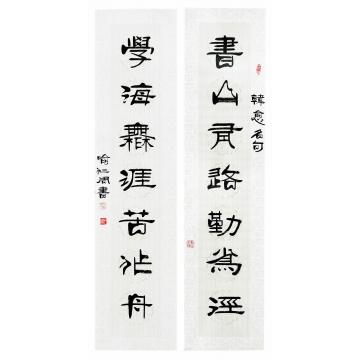 書山有路勤為徑
韓愈名句
學海無涯苦作舟